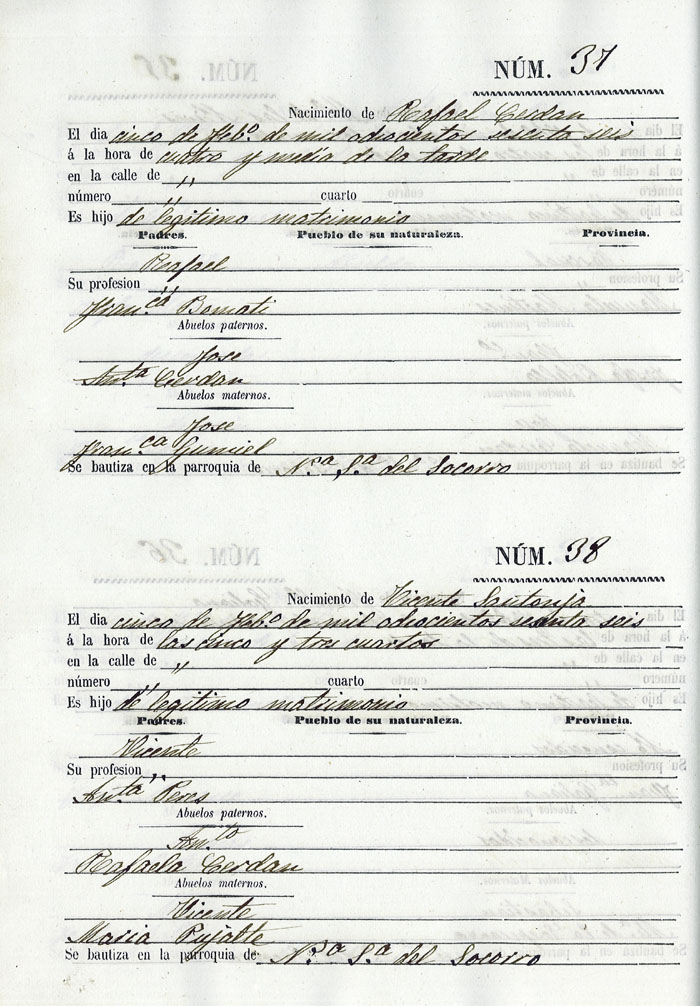 NÚM. 37
Nacimiento de Rafael Cerdan
El dia cinco de Feb.º de mil odiocientos sesenta seis
á la hora de cuatro y media de la tarde
en la calle de "
número " cuarto
Es hijo de legitimo matrimonio
Padres. Pueblo de su naturaleza. Provincia.
Rafael
Su profesion "
Fran.ca Bernati
Abuelos paternos.
Jose
Ant.ta Cerdan
Abuelos maternos.
Jose
Fran.ca Gumiel
Se bautiza en la parroquia de N.ra S.a del Socorro
NÚM. 38
Nacimiento de Vicente Santonja
El dia cinco de Feb.º de mil odiocientos sesenta seis
á la hora de las cinco y tres cuartos
en la calle de "
número " cuarto
Es hijo de legitimo matrimonio
Padres. Pueblo de su naturaleza. Provincia.
Vicente
Su profesion "
Ant.ta Peres
Abuelos paternos.
Ant.to
Rafaela Cerdan
Abuelos maternos.
Vicente
Maria Pujalte
Se bautiza en la parroquia de N.ra S.a del Socorro